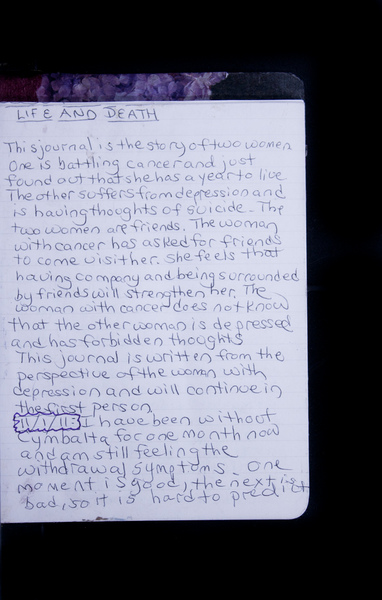 LIFE AND DEATH
This journal is the story of two women
One is battling cancer and just
found out that she has a year to live
The other suffers from depression and
is having thoughts of suicide. The
two women are friends. The woman
with cancer has asked for friends
to come visit her. She feels that
having company and being surrounded
by friends will strengthen her. The
woman with cancer does not know
that the other woman is depressed
and has forbidden thoughts
This journal is written from the
perspective of the woman with
depression and will continue in
the first person
11/1/13 I have been without
Cymbalta for one month now
and am still feeling the
withdrawal symptoms. One
moment is good, the next is
bad, so it is hard to predict